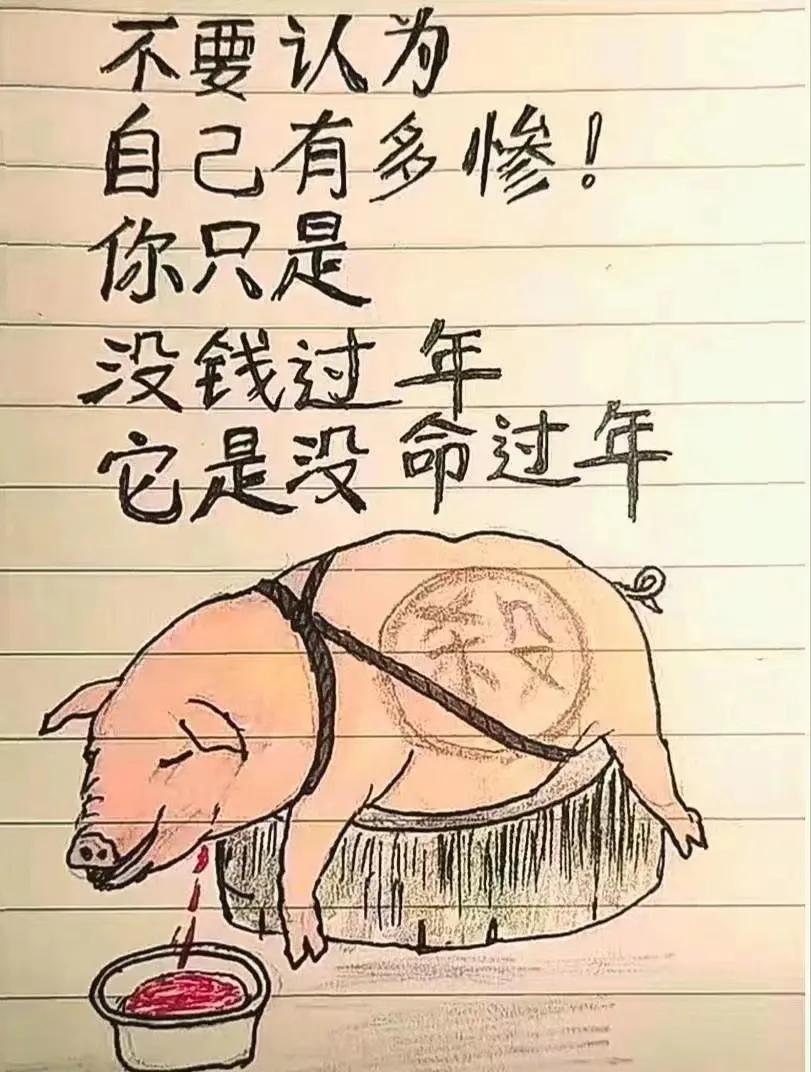 不要认为
自己有多惨！
你只是
没钱过年
它是没命过年
殺